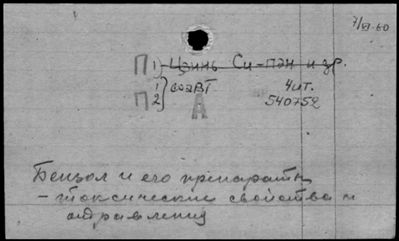 7/VI-60
П 1 Цзинь Си-пэн и др.
П 1 2 соавт
Чит.
540752
А
Бензол и его препараты
– токсические свойства и
отравления